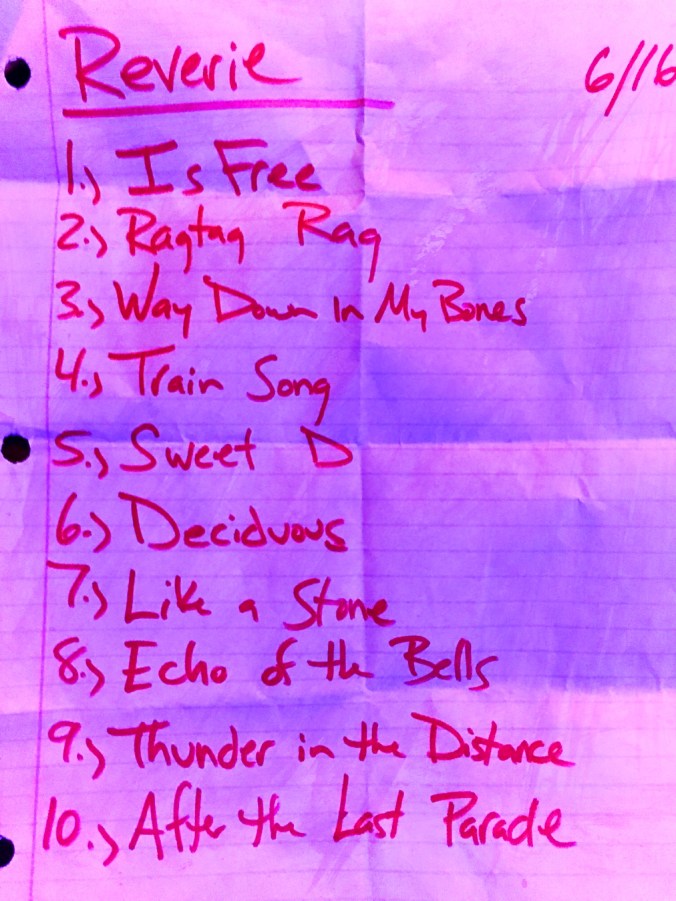 Reverie 6/16
1., Is Free
2., Ragtag Rag
3., Way Down In My Bones
4., Train Song
5., Sweet D
6., Deciduous
7., Like a Stone
8., Echo of the Bells
9., Thunder in the Distance
10., After the Last Parade